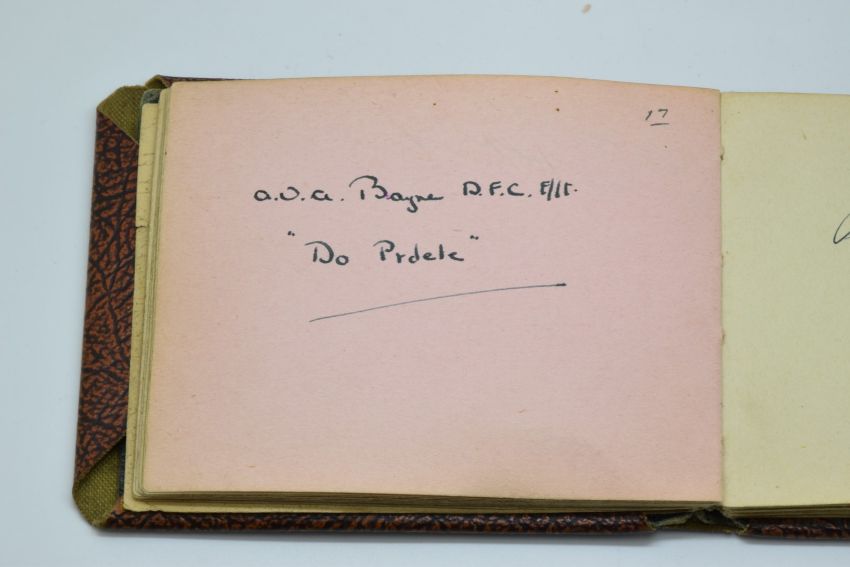 17
A.W.A. Bayne D.F.C. F/Lt.
"Do Prdele"